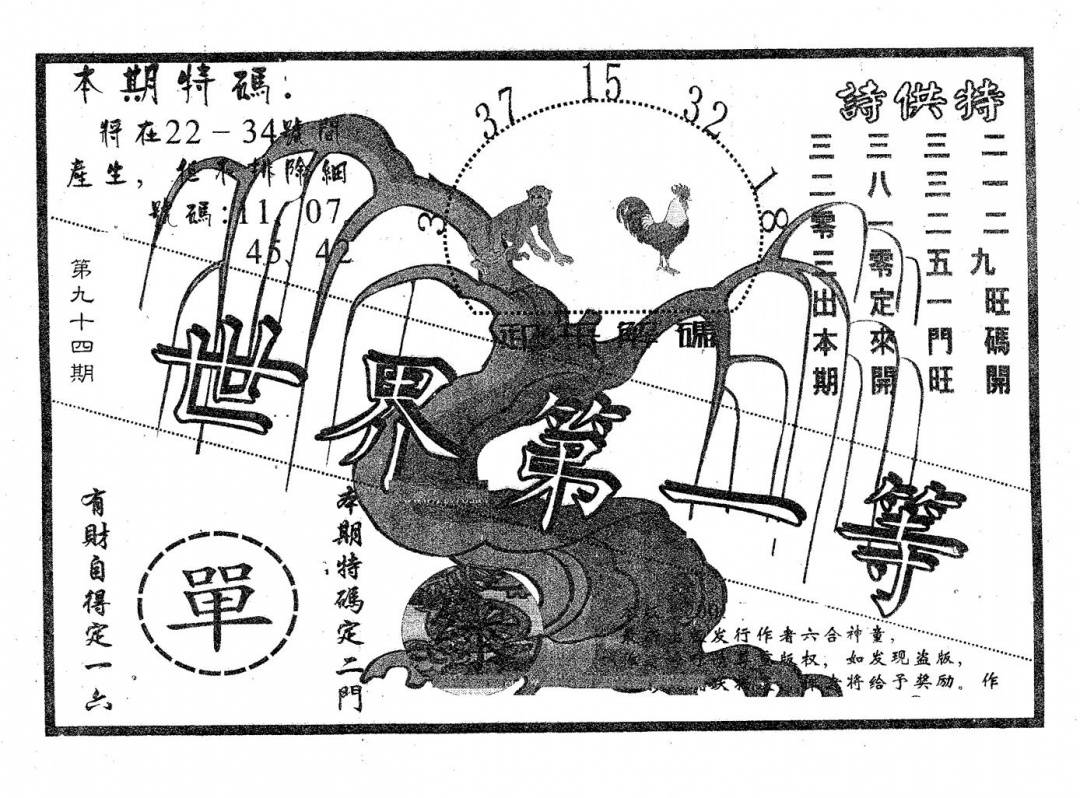 本期特碼：
將在22－34號間
產生，但不排除細
號碼：11、07、
45、42
第九十四期
37
15
32
特供詩
二一二九旺碼開
三三二五一門旺
三八一零定來開
三二零三出本期
解碼
世界第一等
本期特碼定二門
有財自得定一六
單
发行作者六合神童，
版权，如发现盗版，
将给予奖励。作